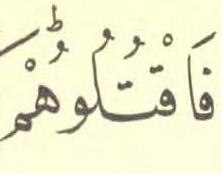 فَاقْتُلُوْهُمْ ؕ